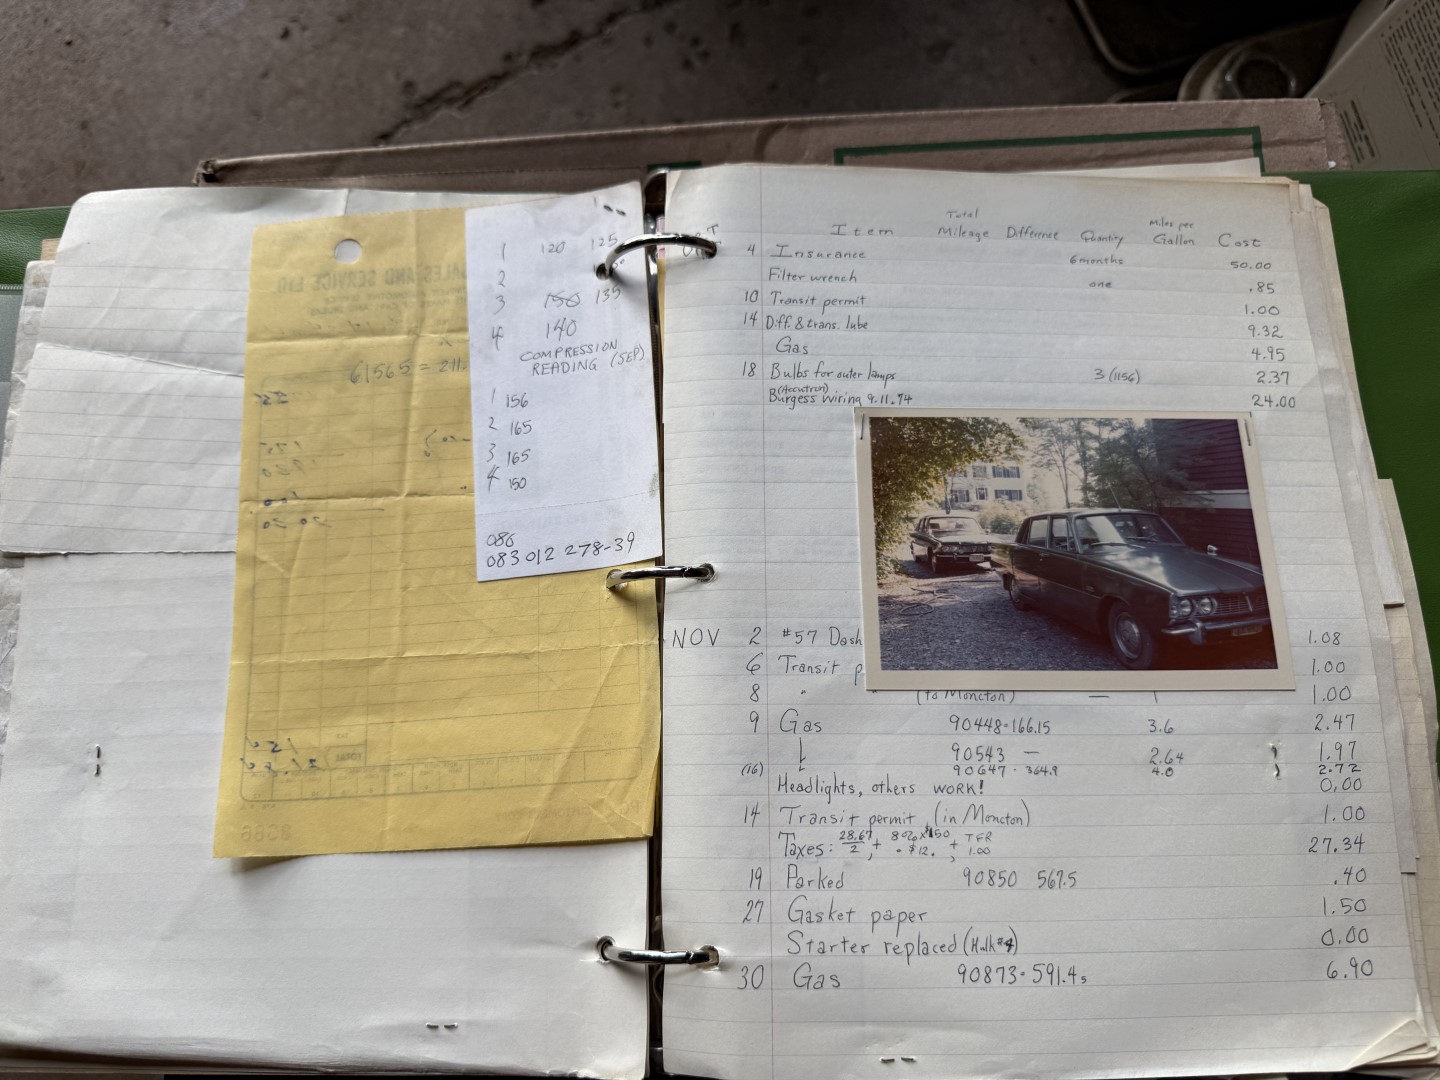 SALES AND SERVICE LTD.
61565 = 211
8366
TOTAL
1 120 125
2
3 150 135
4 140
COMPRESSION
READING (SEP)
1 156
2 165
3 165
4 150
086
083 012 278-39
Item Total Mileage Difference Quantity Miles per Gallon Cost
OCT 4 Insurance 6 months 50.00
Filter wrench one .85
10 Transit permit 1.00
14 Diff. & trans. lube 9.32
Gas 4.95
18 Bulbs for outer lamps 3 (1156) 2.37
(Accutron)
Burgess wiring 9.11.74 24.00
NOV 2 #57 Dash 1.08
6 Transit p 1.00
8 " " (to Moncton) — 1.00
9 Gas 90448 = 166.15 3.6 2.47
90543 — 2.64 1.97
(16) 90647 - 364.9 4.0 2.72
Headlights, others WORK! 0.00
14 Transit permit (in Moncton) 1.00
Taxes: 28.67/2 , + 8% x $150 = $12. , + TFR 1.00 27.34
19 Parked 90850 567.5 .40
27 Gasket paper 1.50
Starter replaced (Hulk #4) 0.00
30 Gas 90873 = 591.4s 6.90